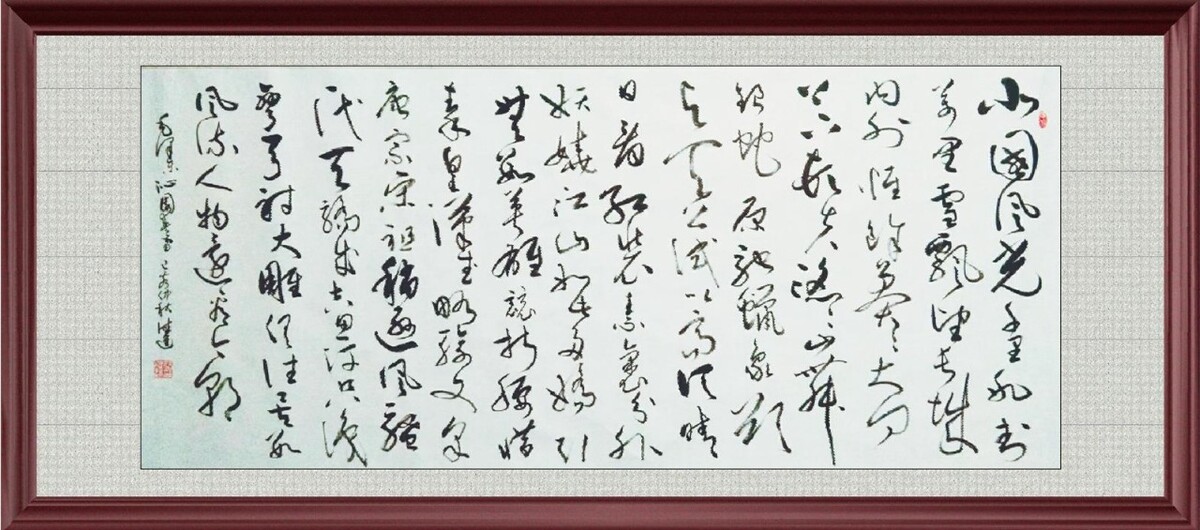 北國風光千里冰封
萬里雪飄望長城
內外惟餘莽莽大河
上下頓失滔滔山舞
銀蛇原馳蠟象欲
與天公試比高須晴
日看紅裝素裹分外
妖嬈江山如此多嬌引
無數英雄競折腰惜
秦皇漢武略輸文采
唐宗宋祖稍遜風騷
一代天驕成吉思汗只識
彎弓射大雕俱往矣數
風流人物還看今朝
毛澤東沁園春雪己亥仲秋